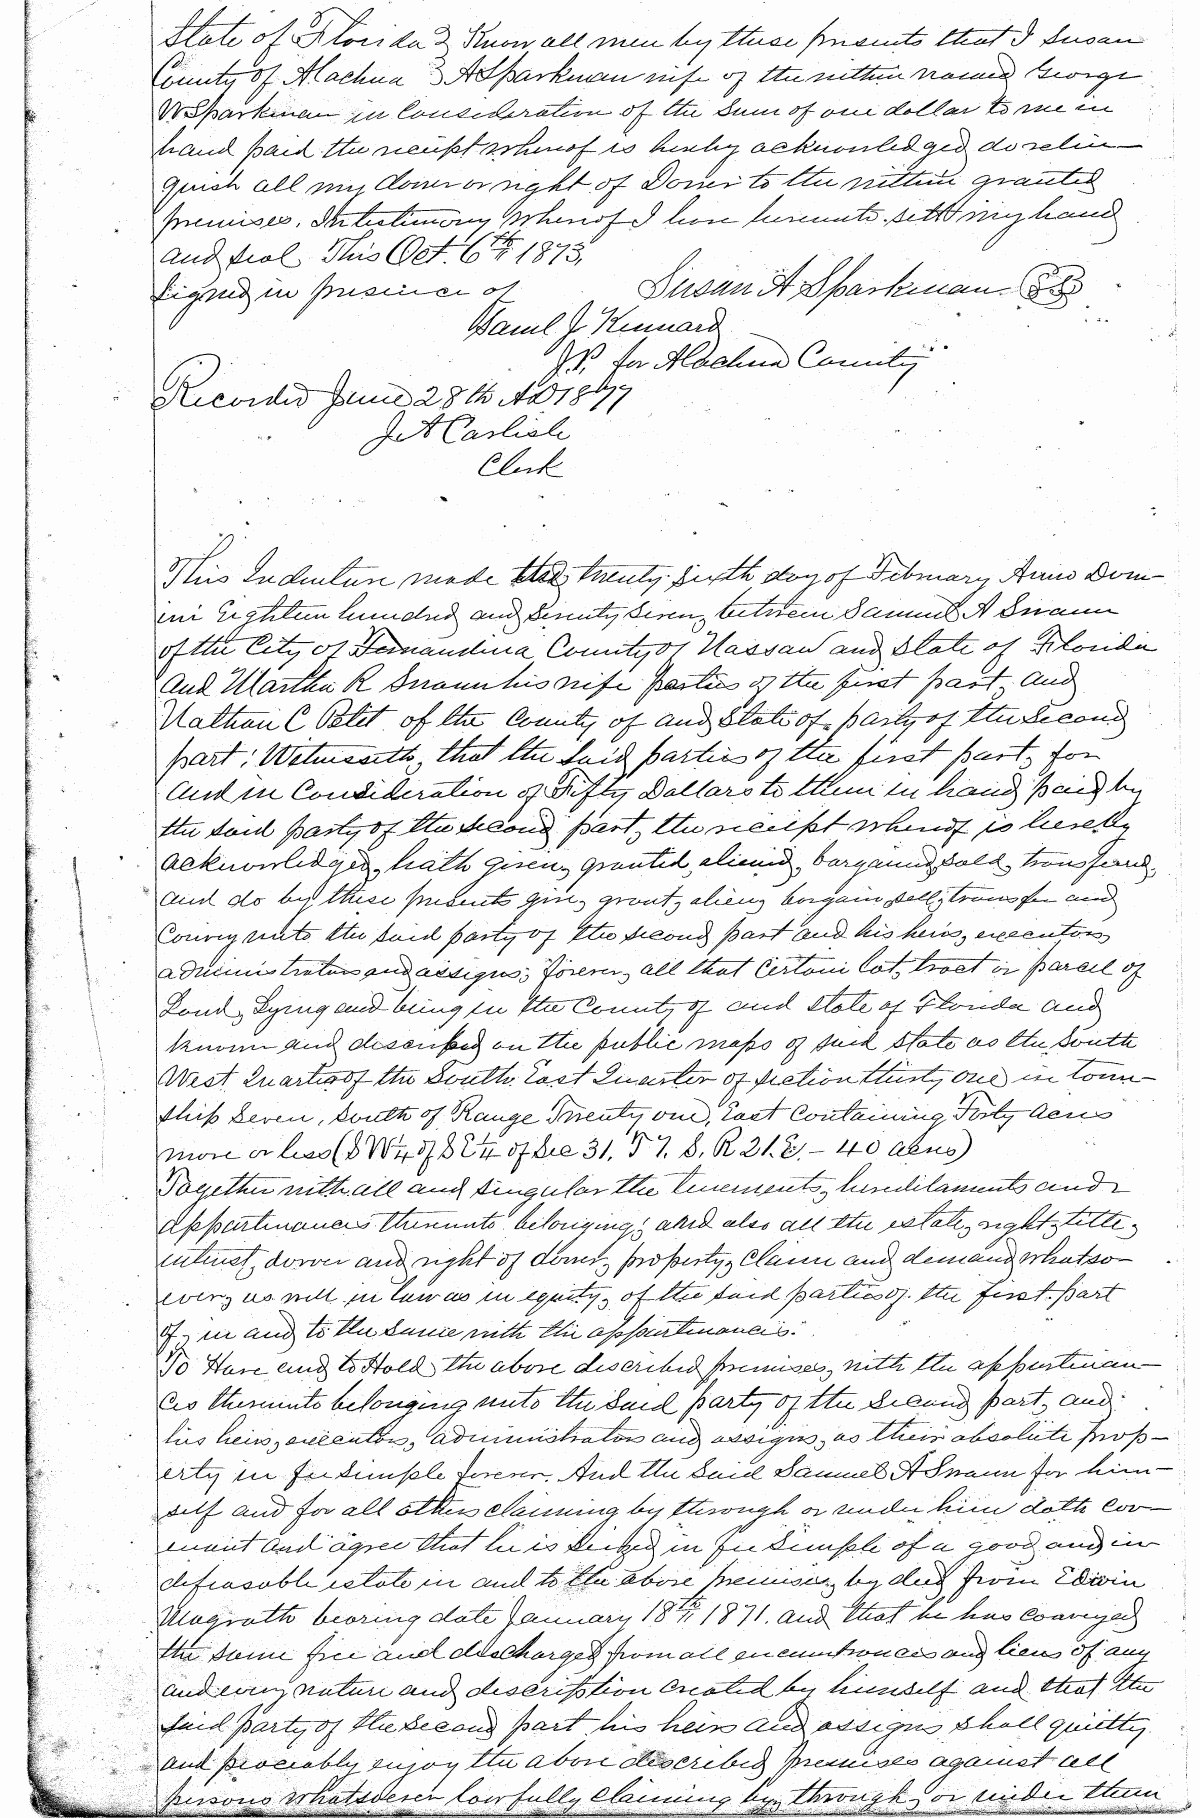 State of Florida } Know all men by these presents that I Susan
County of Alachua } A Sparkman wife of the within named George
W Sparkman in Consideration of the Sum of one dollar to me in
hand paid the receipt whereof is hereby acknowledged do relin-
quish all my dower or right of Dower to the within granted
premises. In testimony whereof I have hereunto sett my hand
and seal This Oct. 6th 1873.
Signed in presence of Susan A Sparkman
J Kennard
J.P. for Alachua County
Recorded June 28th AD 1877
J A Carlisle
Clerk
This Indenture made the twenty sixth day of February Anno Dom-
ini Eighteen hundred and Seventy Seven, between Samuel A Swann
of the City of Fernandina County of Nassau and State of Florida
and Martha R Swann his wife parties of the first part, and
Nathan C Petit of the County of and State of party of the Second
part; Witnesseth, that the said parties of the first part, for
and in Consideration of Fifty Dollars to them in hand paid by
the said party of the second part, the receipt whereof is hereby
acknowledged, hath given, granted, aliened, bargained, sold, transfered,
and do by these presents give, grant, alien, bargain, sell, transfer and
Convey unto the said party of the second part and his heirs, executors,
administrators and assigns; forever, all that Certain lot, tract or parcel of
Land, Lying and being in the County of and State of Florida and
known and described on the public maps of said State as the South
West Quarter of the South East Quarter of section thirty one in town-
ship Seven, South of Range Twenty one, East Containing Forty acres
more or less (S W ¼ of S E ¼ of Sec 31. T 7. S. R 21. E. - 40 acres)
Together with all and singular the tenements, hereditaments and
appertinances thereunto belonging; and also all the estate, right, title,
interest, dower and right of dower, property, Claim and demand whatso-
ever, as well in law as in equity, of the said parties of the first part
of, in and to the same with the appertinances.
To Have and to Hold the above described premises, with the appertinan-
ces thereunto belonging unto the said party of the second part, and
his heirs, executors, administrators and assigns, as their absolute prop-
erty in fee simple forever. And the Said Samuel A Swann for him-
self and for all others claiming by through or under him doth cov-
enant and agree that he is seized in fee simple of a good and in
defeasable estate in and to the above premises, by deed from Edwin
Magrath bearing date January 18th 1871. and that he has conveyed
the same free and discharged from all encumbrances and liens of any
and every nature and description created by himself and that the
said party of the second part his heirs and assigns shall quietly
and peaceably enjoy the above described premises against all
persons whatsoever lawfully claiming by, through, or under them